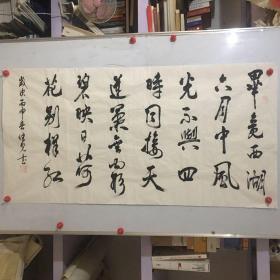 畢竟西湖
六月中風
光不與四
時同接天
蓮葉無窮
碧映日荷
花別樣紅
歲次丙申